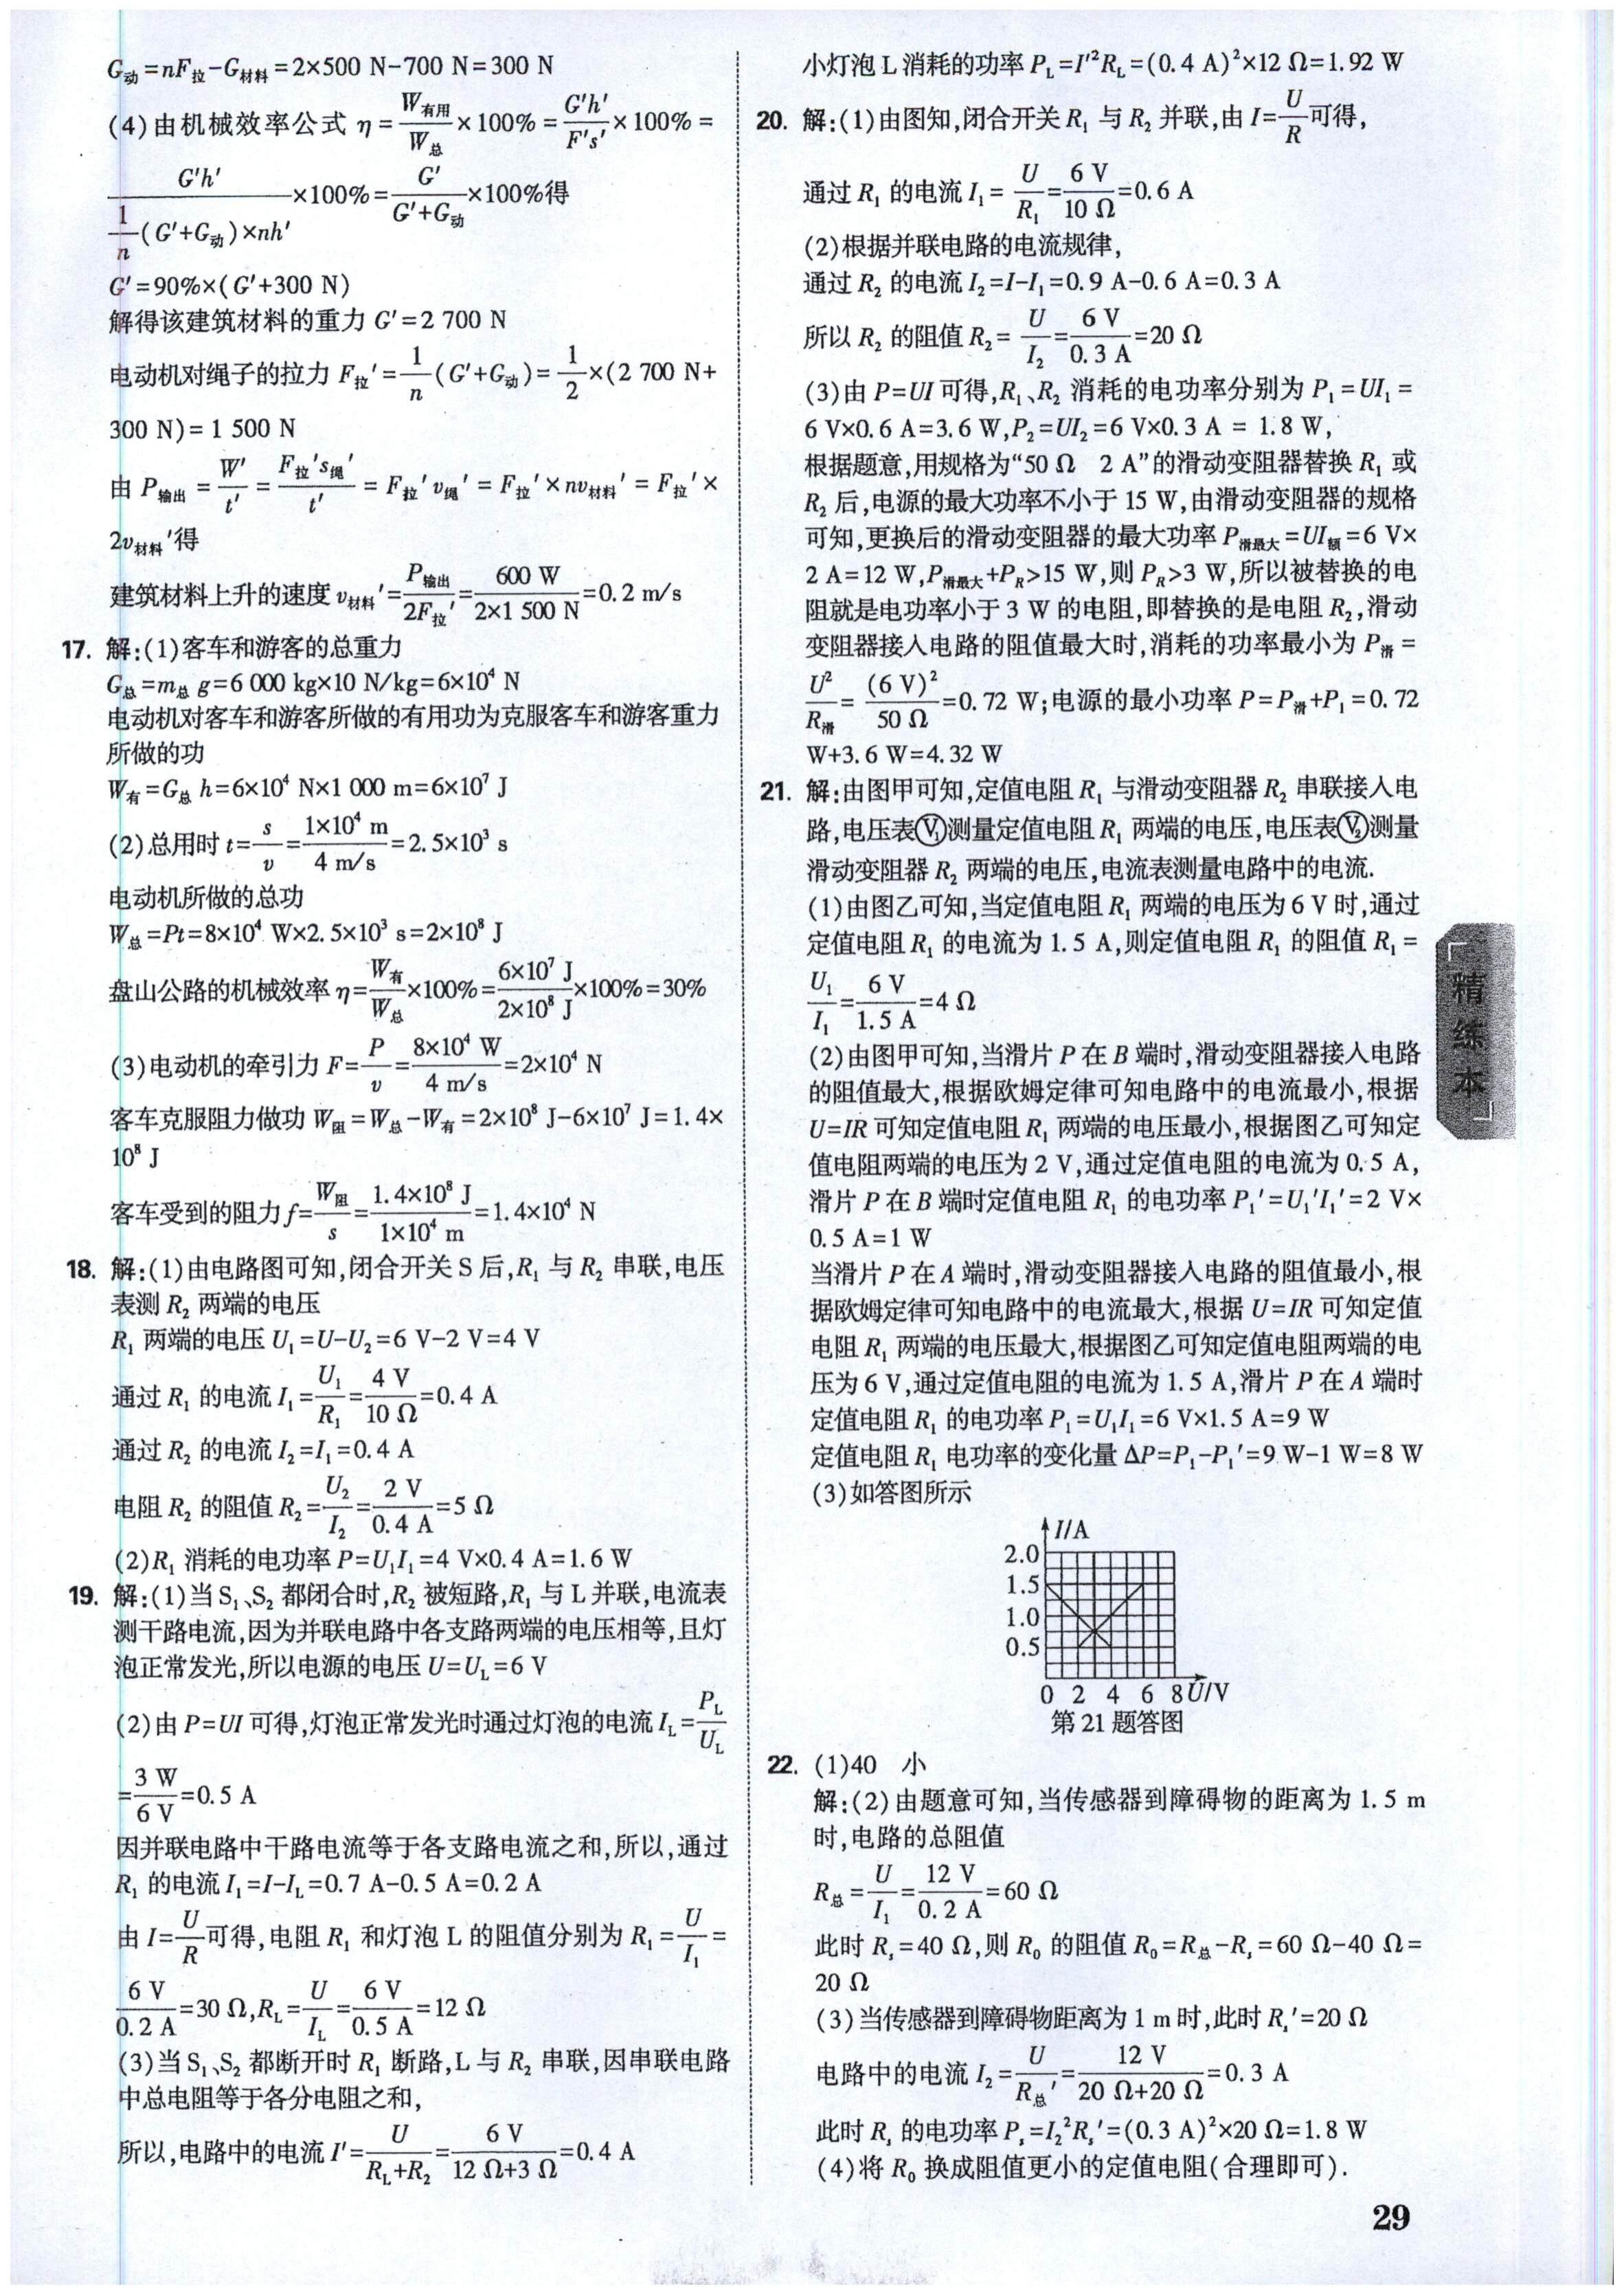 G动=nF拉-G材料=2×500 N-700 N=300 N
(4)由机械效率公式 η=W有用/W总×100%=G'h'/F's'×100%=
G'h'/(1/n(G'+G动)×nh')×100%=G'/(G'+G动)×100%得
G'=90%×(G'+300 N)
解得该建筑材料的重力 G'=2 700 N
电动机对绳子的拉力 F拉'=1/n(G'+G动)=1/2×(2 700 N+
300 N)=1 500 N
由 P输出=W'/t'=F拉's绳'/t'=F拉'v绳'=F拉'×nv材料'=F拉'×
2v材料'得
建筑材料上升的速度 v材料'=P输出/2F拉'=600 W/(2×1 500 N)=0.2 m/s
17. 解:(1)客车和游客的总重力
G总=m总 g=6 000 kg×10 N/kg=6×10⁴ N
电动机对客车和游客所做的有用功为克服客车和游客重力
所做的功
W有=G总 h=6×10⁴ N×1 000 m=6×10⁷ J
(2)总用时 t=s/v=1×10⁴ m/4 m/s=2.5×10³ s
电动机所做的总功
W总=Pt=8×10⁴ W×2.5×10³ s=2×10⁸ J
盘山公路的机械效率 η=W有/W总×100%=6×10⁷ J/2×10⁸ J×100%=30%
(3)电动机的牵引力 F=P/v=8×10⁴ W/4 m/s=2×10⁴ N
客车克服阻力做功 W阻=W总-W有=2×10⁸ J-6×10⁷ J=1.4×
10⁸ J
客车受到的阻力 f=W阻/s=1.4×10⁸ J/1×10⁴ m=1.4×10⁴ N
18. 解:(1)由电路图可知,闭合开关 S 后,R₁ 与 R₂ 串联,电压
表测 R₂ 两端的电压
R₁ 两端的电压 U₁=U-U₂=6 V-2 V=4 V
通过 R₁ 的电流 I₁=U₁/R₁=4 V/10 Ω=0.4 A
通过 R₂ 的电流 I₂=I₁=0.4 A
电阻 R₂ 的阻值 R₂=U₂/I₂=2 V/0.4 A=5 Ω
(2)R₁ 消耗的电功率 P=U₁I₁=4 V×0.4 A=1.6 W
19. 解:(1)当 S₁、S₂ 都闭合时,R₂ 被短路,R₁ 与 L 并联,电流表
测干路电流,因为并联电路中各支路两端的电压相等,且灯
泡正常发光,所以电源的电压 U=U_L=6 V
(2)由 P=UI 可得,灯泡正常发光时通过灯泡的电流 I_L=P_L/U_L
=3 W/6 V=0.5 A
因并联电路中干路电流等于各支路电流之和,所以,通过
R₁ 的电流 I₁=I-I_L=0.7 A-0.5 A=0.2 A
由 I=U/R可得,电阻 R₁ 和灯泡 L 的阻值分别为 R₁=U/I₁=
6 V/0.2 A=30 Ω,R_L=U/I_L=6 V/0.5 A=12 Ω
(3)当 S₁、S₂ 都断开时 R₁ 断路,L 与 R₂ 串联,因串联电路
中总电阻等于各分电阻之和,
所以,电路中的电流 I'=U/(R_L+R₂)=6 V/(12 Ω+3 Ω)=0.4 A
小灯泡 L 消耗的功率 P_L=I'²R_L=(0.4 A)²×12 Ω=1.92 W
20. 解:(1)由图知,闭合开关 R₁ 与 R₂ 并联,由 I=U/R可得,
通过 R₁ 的电流 I₁=U/R₁=6 V/10 Ω=0.6 A
(2)根据并联电路的电流规律,
通过 R₂ 的电流 I₂=I-I₁=0.9 A-0.6 A=0.3 A
所以 R₂ 的阻值 R₂=U/I₂=6 V/0.3 A=20 Ω
(3)由 P=UI 可得,R₁、R₂ 消耗的电功率分别为 P₁=UI₁=
6 V×0.6 A=3.6 W,P₂=UI₂=6 V×0.3 A = 1.8 W,
根据题意,用规格为“50 Ω 2 A”的滑动变阻器替换 R₁ 或
R₂ 后,电源的最大功率不小于 15 W,由滑动变阻器的规格
可知,更换后的滑动变阻器的最大功率 P滑最大=UI额=6 V×
2 A=12 W,P滑最大+P_R>15 W,则 P_R>3 W,所以被替换的电
阻就是电功率小于 3 W 的电阻,即替换的是电阻 R₂,滑动
变阻器接入电路的阻值最大时,消耗的功率最小为 P滑=
U²/R滑=(6 V)²/50 Ω=0.72 W;电源的最小功率 P=P滑+P₁=0.72
W+3.6 W=4.32 W
21. 解:由图甲可知,定值电阻 R₁ 与滑动变阻器 R₂ 串联接入电
路,电压表Ⓥ₁测量定值电阻 R₁ 两端的电压,电压表Ⓥ₂测量
滑动变阻器 R₂ 两端的电压,电流表测量电路中的电流.
(1)由图乙可知,当定值电阻 R₁ 两端的电压为 6 V 时,通过
定值电阻 R₁ 的电流为 1.5 A,则定值电阻 R₁ 的阻值 R₁=
U₁/I₁=6 V/1.5 A=4 Ω
(2)由图甲可知,当滑片 P 在 B 端时,滑动变阻器接入电路
的阻值最大,根据欧姆定律可知电路中的电流最小,根据
U=IR 可知定值电阻 R₁ 两端的电压最小,根据图乙可知定
值电阻两端的电压为 2 V,通过定值电阻的电流为 0.5 A,
滑片 P 在 B 端时定值电阻 R₁ 的电功率 P₁'=U₁'I₁'=2 V×
0.5 A=1 W
当滑片 P 在 A 端时,滑动变阻器接入电路的阻值最小,根
据欧姆定律可知电路中的电流最大,根据 U=IR 可知定值
电阻 R₁ 两端的电压最大,根据图乙可知定值电阻两端的电
压为 6 V,通过定值电阻的电流为 1.5 A,滑片 P 在 A 端时
定值电阻 R₁ 的电功率 P₁=U₁I₁=6 V×1.5 A=9 W
定值电阻 R₁ 电功率的变化量 ΔP=P₁-P₁'=9 W-1 W=8 W
(3)如答图所示
I/A
2.0
1.5
1.0
0.5
0 2 4 6 8 U/V
第 21 题答图
22. (1)40 小
解:(2)由题意可知,当传感器到障碍物的距离为 1.5 m
时,电路的总阻值
R总=U/I₁=12 V/0.2 A=60 Ω
此时 Rₛ=40 Ω,则 R₀ 的阻值 R₀=R总-Rₛ=60 Ω-40 Ω=
20 Ω
(3)当传感器到障碍物距离为 1 m 时,此时 Rₛ'=20 Ω
电路中的电流 I₂=U/R总'=12 V/(20 Ω+20 Ω)=0.3 A
此时 Rₛ 的电功率 Pₛ=I₂²Rₛ'=(0.3 A)²×20 Ω=1.8 W
(4)将 R₀ 换成阻值更小的定值电阻(合理即可).
「精练本」
29